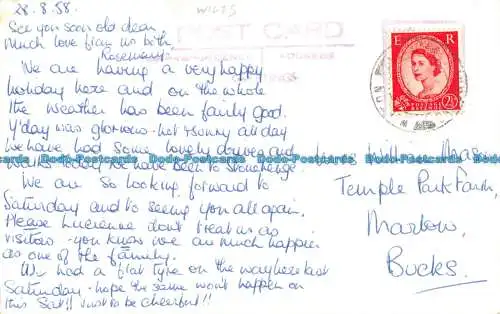 28.8.58.
WILTS
See you soon old dear,
Much love from us both
Rosemary.
POST CARD
ADDRESS
We are having a very happy
holiday here and on the whole
the weather has been fairly good.
Y'day was glorious - hot & sunny all day
We have had some lovely drives and
walks today we have been to Stonehenge
We are so looking forward to
Saturday and to seeing you all again.
Please Lucienne don't treat us as
visitors - you know we are much happier
as one of the family.
We had a flat tyre on the way here last
Saturday - hope the same won't happen on
this Sat!! Just to be cheerful!!
E R
POSTAGE REVENUE
2½D
Temple Park Farm,
Marlow,
Bucks.
Bodo-Postcards Bodo-Postcards Bodo-Postcards